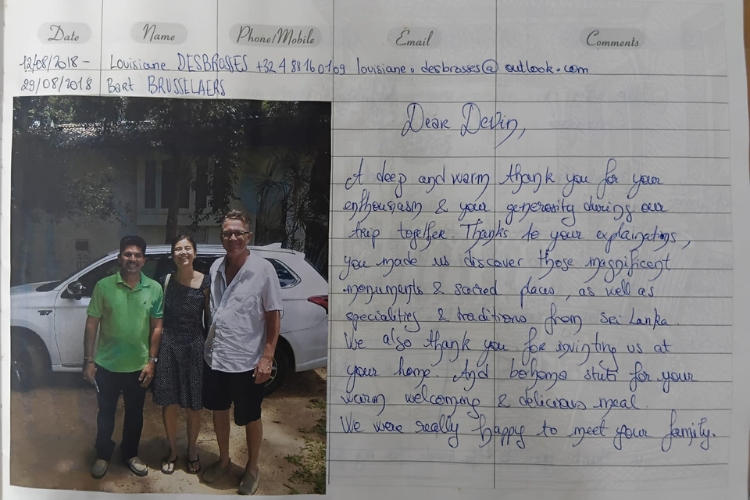 Date Name Phone/Mobile Email Comments
12/08/2018 - Louisiane DESBROSSES +32 4 88 16 01 09 louisiane.desbrosses@outlook.com
29/08/2018 Bart BRUSSELAERS
Dear Devin,
A deep and warm thank you for your
enthousiasm & your generosity during our
trip together. Thanks to your explanations,
you made us discover those magnificent
monuments & sacred places, as well as
specialities & traditions from Sri Lanka.
We also thank you for inviting us at
your home. And bohoma stuti for your
warm welcoming & delicious meal.
We were really happy to meet your family.